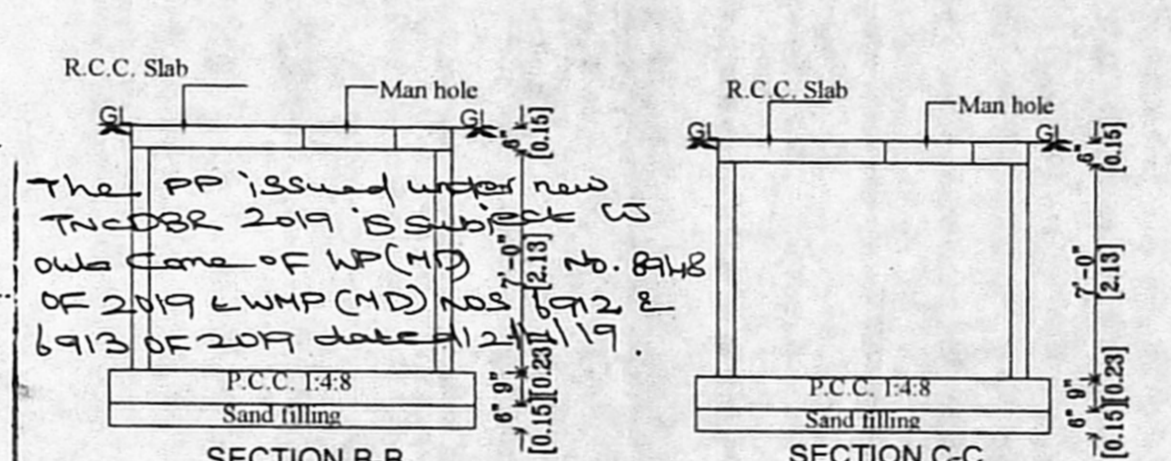 R.C.C. Slab
Man hole
GL
GL
6"
[0.15]
The PP issued under new
TNCDBR 2019 is subject to
out come of WP(MD) No. 8948
OF 2019 & WMP(MD) NOS 6912 &
6913 OF 2019 dated 12/4/19.
7'-0"
[2.13]
P.C.C. 1:4:8
9"
[0.23]
Sand filling
6"
[0.15]
SECTION B-B
R.C.C. Slab
Man hole
GL
GL
6"
[0.15]
7'-0"
[2.13]
P.C.C. 1:4:8
9"
[0.23]
Sand filling
6"
[0.15]
SECTION C-C